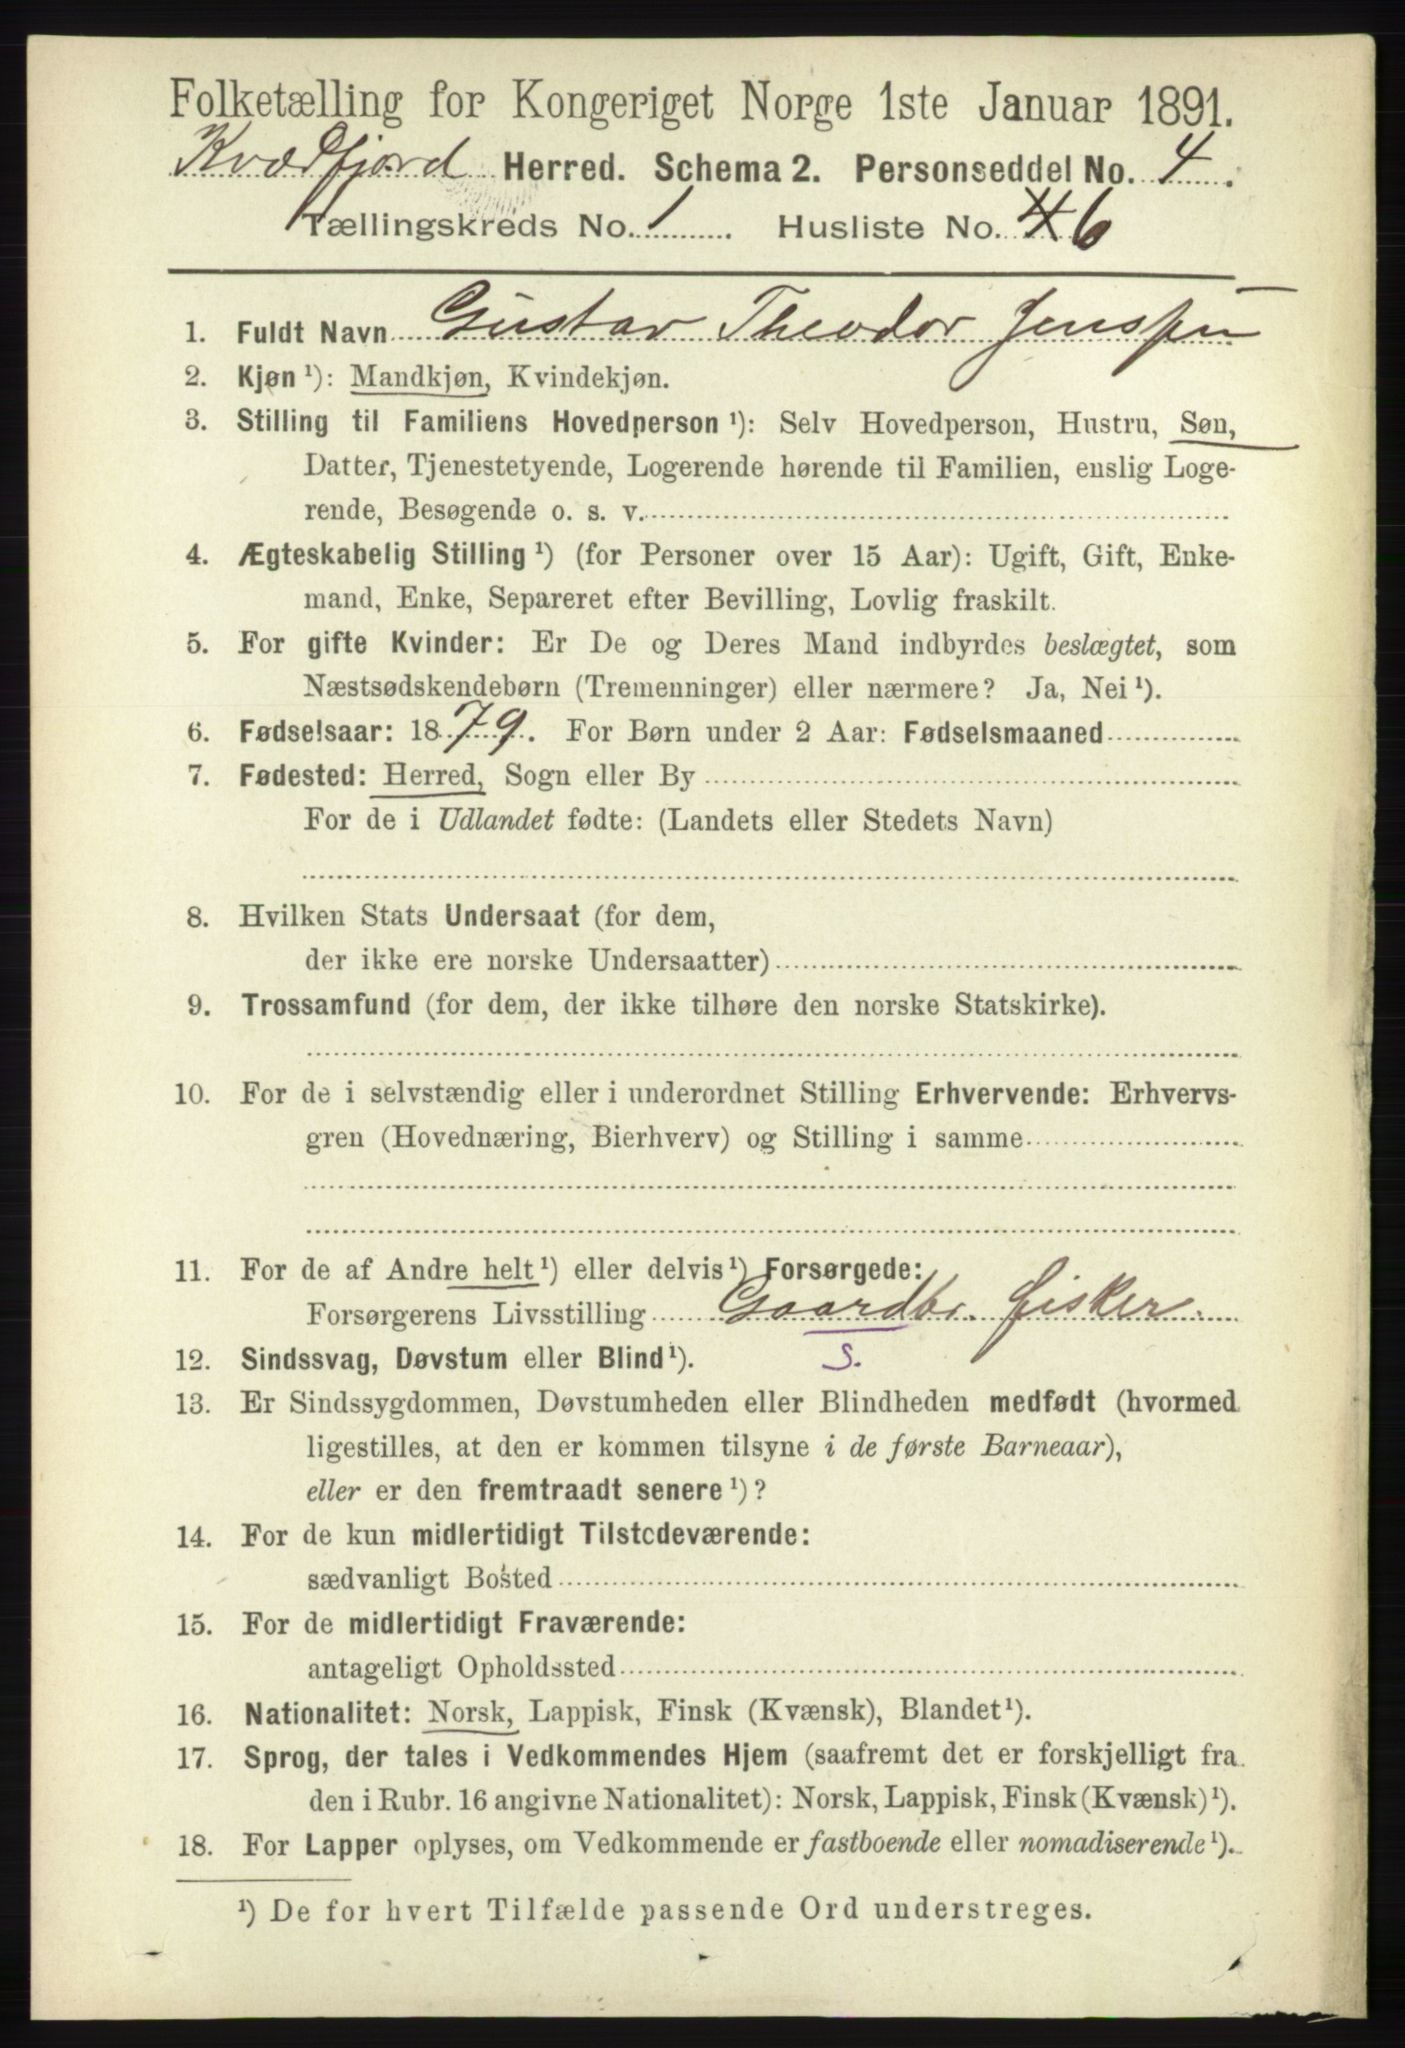 Folketælling for Kongeriget Norge 1ste Januar 1891.
Kvædfjord Herred. Schema 2. Personseddel No. 4.
Tællingskreds No. 1. Husliste No. 6
1. Fuldt Navn Gustav Theodor Jenssen
2. Kjøn ¹): Mandkjøn, Kvindekjøn.
3. Stilling til Familiens Hovedperson ¹): Selv Hovedperson, Hustru, Søn,
Datter, Tjenestetyende, Logerende hørende til Familien, enslig Loge-
rende, Besøgende o. s. v.
4. Ægteskabelig Stilling ¹) (for Personer over 15 Aar): Ugift, Gift, Enke-
mand, Enke, Separeret efter Bevilling, Lovlig fraskilt.
5. For gifte Kvinder: Er De og Deres Mand indbyrdes beslægtet, som
Næstsødskendebørn (Tremenninger) eller nærmere? Ja, Nei ¹).
6. Fødselsaar: 1879. For Børn under 2 Aar: Fødselsmaaned
7. Fødested: Herred, Sogn eller By
For de i Udlandet fødte: (Landets eller Stedets Navn)
8. Hvilken Stats Undersaat (for dem,
der ikke ere norske Undersaatter)
9. Trossamfund (for dem, der ikke tilhøre den norske Statskirke).
10. For de i selvstændig eller i underordnet Stilling Erhvervende: Erhvervs-
gren (Hovednæring, Bierhverv) og Stilling i samme
11. For de af Andre helt ¹) eller delvis ¹) Forsørgede:
Forsørgerens Livsstilling Gaardbr. fisker.
12. Sindssvag, Døvstum eller Blind ¹). S.
13. Er Sindssygdommen, Døvstumheden eller Blindheden medfødt (hvormed
ligestilles, at den er kommen tilsyne i de første Barneaar),
eller er den fremtraadt senere ¹)?
14. For de kun midlertidigt Tilstedeværende:
sædvanligt Bosted
15. For de midlertidigt Fraværende:
antageligt Opholdssted
16. Nationalitet: Norsk, Lappisk, Finsk (Kvænsk), Blandet ¹).
17. Sprog, der tales i Vedkommendes Hjem (saafremt det er forskjelligt fra
den i Rubr. 16 angivne Nationalitet): Norsk, Lappisk, Finsk (Kvænsk) ¹).
18. For Lapper oplyses, om Vedkommende er fastboende eller nomadiserende ¹).
¹) De for hvert Tilfælde passende Ord understreges.